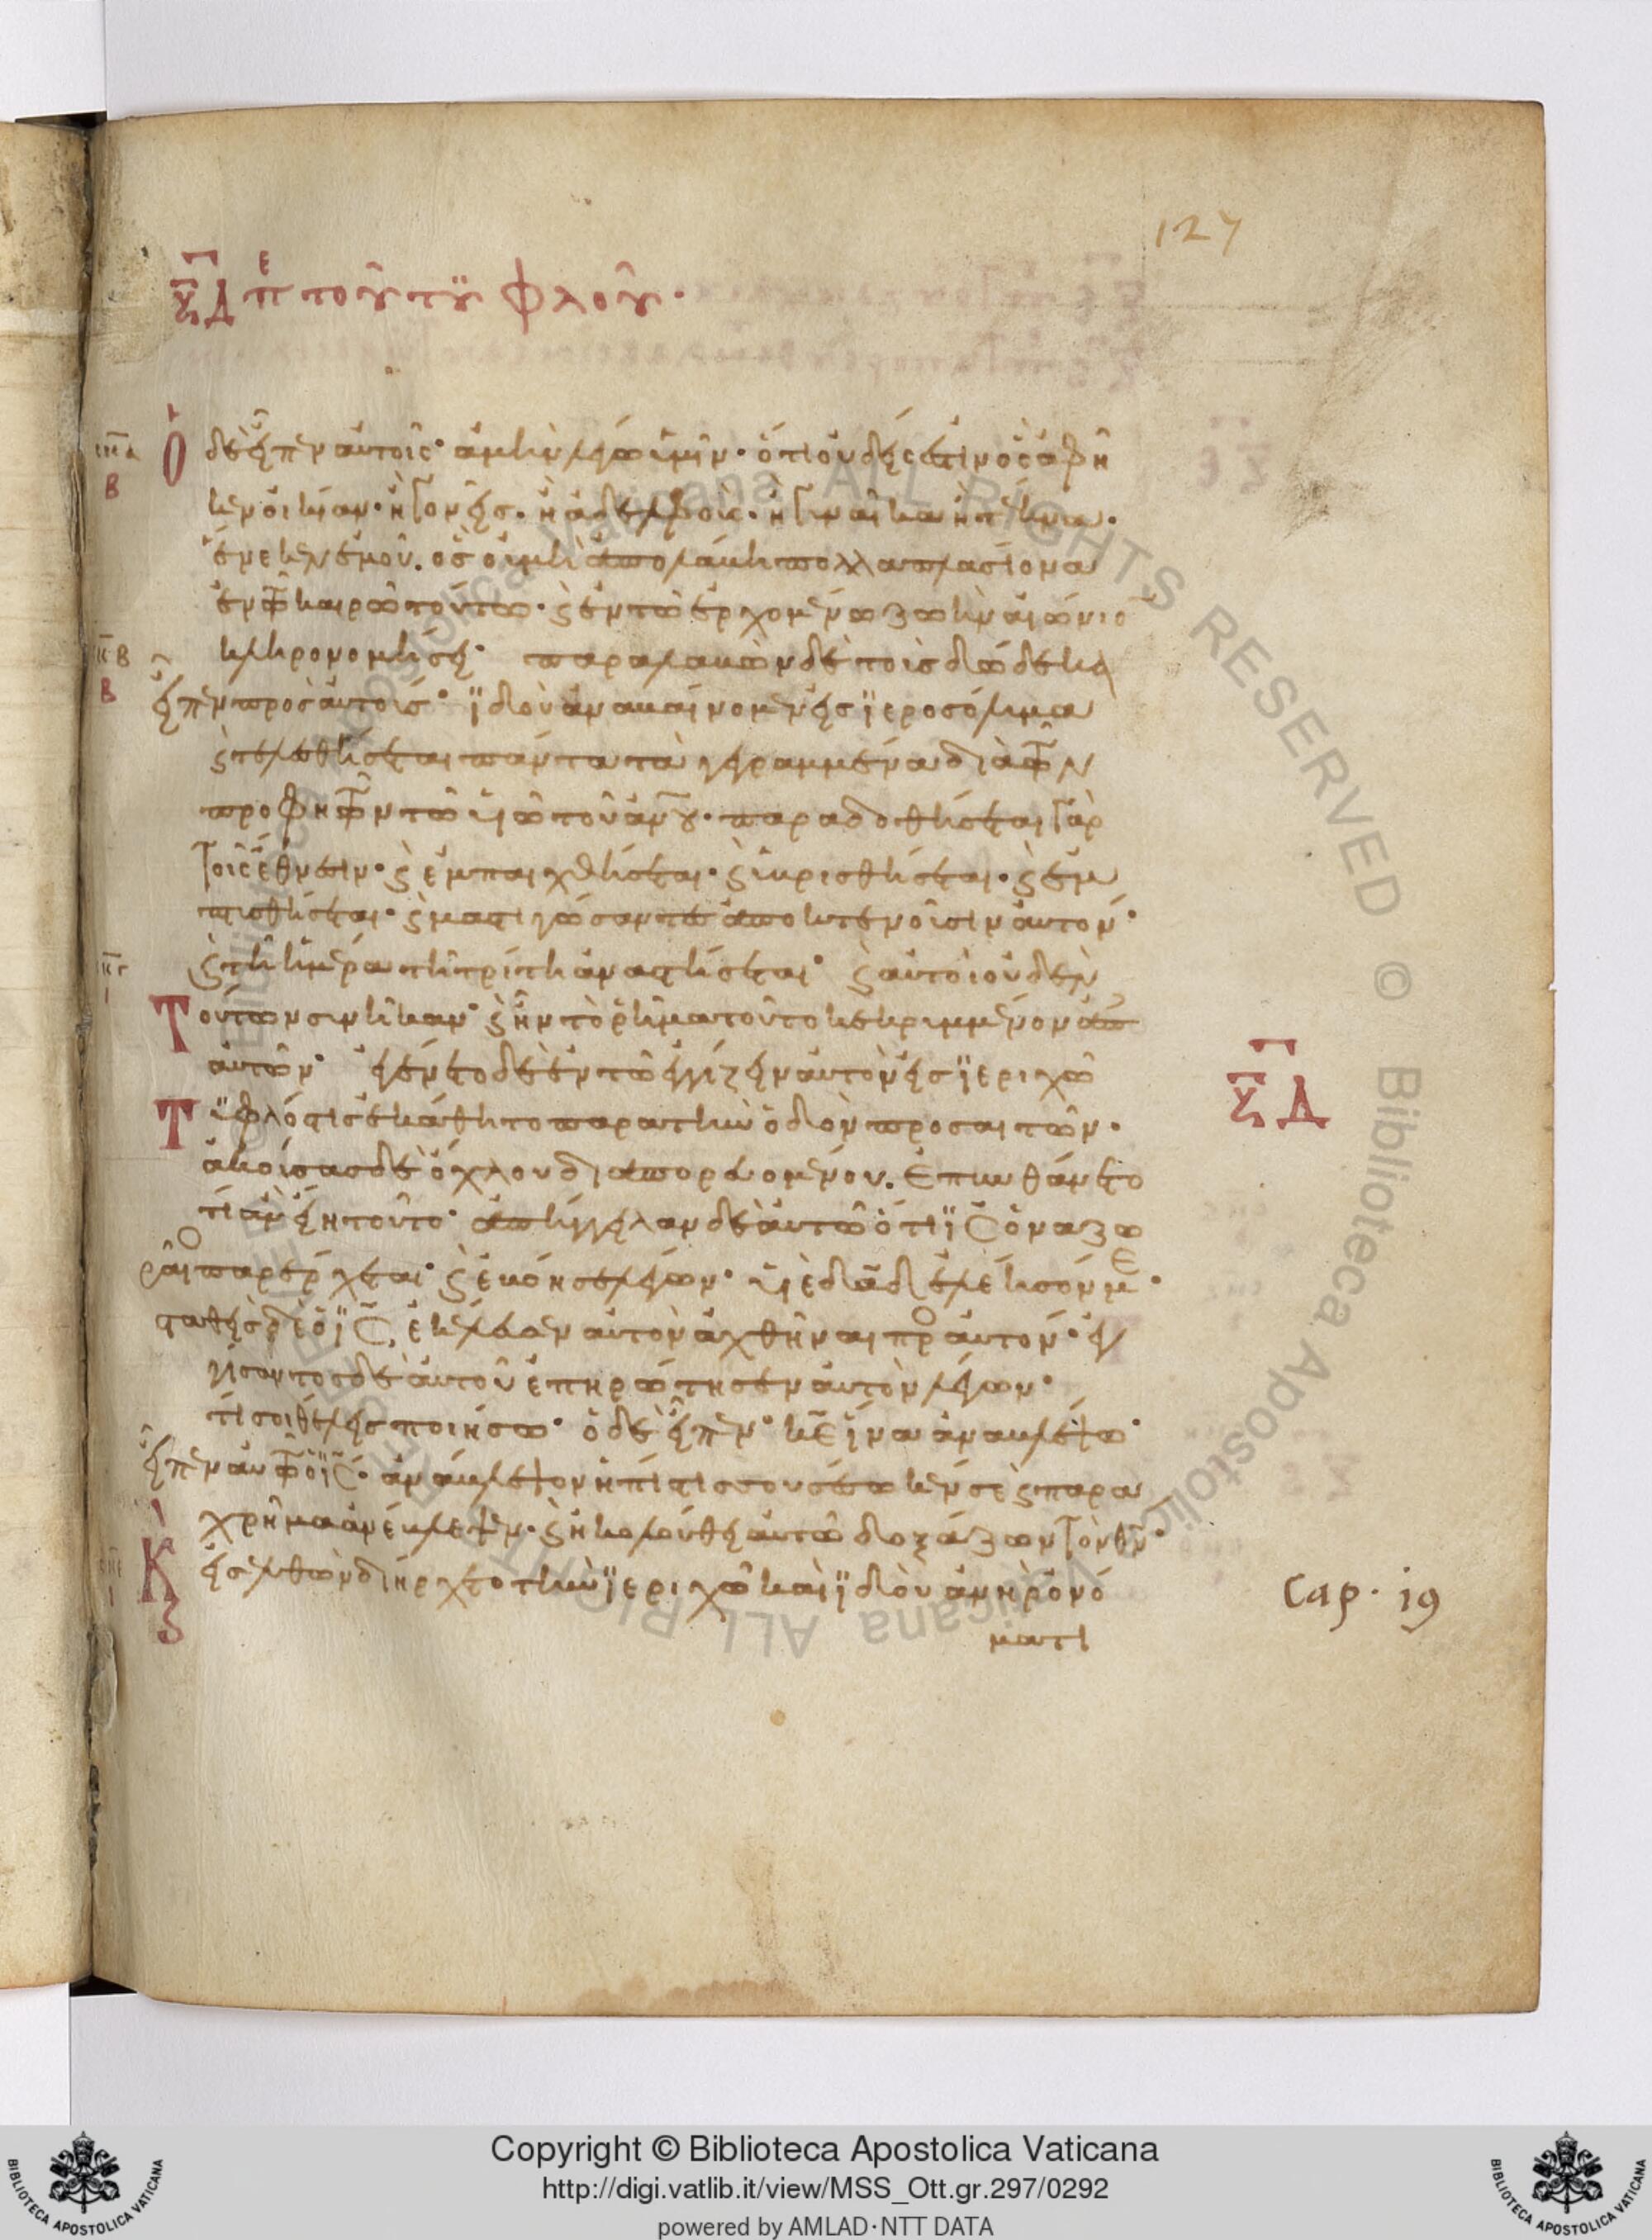 127
ξδ πε τοῦ τυφλοῦ·
ὁ δὲ εἶπεν αὐτοῖς· ἀμὴν λέγω ὑμῖν· ὅτι οὐδείς ἐστιν ὃς ἀφῆ
κεν οἰκίαν· ἢ γονεῖς· ἢ ἀδελφοὺς· ἢ γυναῖκα ἢ τέκνα·
ἕνεκεν ἐμοῦ. ὃς οὐ μὴ ἀπολάβη πολλαπλασίονα
ἐν τῶ καιρῶ τούτω· ϗ ἐν τῶ ἐρχομένω ζωὴν αἰώνιο
κληρονομήσει· παραλαβὼν δὲ τοὺς δώδεκα
εἶπεν πρὸς αὐτούς· ϊδοὺ ἀναβαίνομεν εἰς ϊεροσόλυμα
ϗ τελεσθήσεται πάντα τὰ γεγραμμένα διὰ τῶν
προφητῶν τῶ υἱῶ τοῦ ἀνου· παραδοθήσεται γὰρ
τοῖς ἔθνεσιν· ϗ ἐμπαιχθήσεται· ϗ ὑβρισθήσεται· ϗ ἐμ
πτυσθήσεται· ϗ μαστιγώσαντες ἀποκτενοῦσιν αὐτόν·
ϗ τῆ ἡμέρα τῆ τρίτη ἀναστήσεται· ϗ αὐτοὶ οὐδὲν
Τούτων συνῆκαν· ϗ ἦν τὸ ῥῆμα τοῦτο κεκρυμμένον ἀπ
αὐτῶν· ἐγένετο δὲ ἐν τῶ ἐγγίζειν αὐτὸν εἰς ϊεριχῶ
Τυφλός τις ἐκάθητο παρὰ τὴν ὁδὸν προσαιτῶν·
ξδ
ἀκούσας δὲ ὄχλου διαπορευομένου. ἐπυνθάνετο
τί ἂν εἴη τοῦτο· ἀπήγγειλαν δὲ αὐτῶ ὅτι ϊς ὁ ναζω
ραῖος παρέρχεται· ϗ ἐβόησε λέγων· υἱὲ δαδ ἐλέησόν με·
σταθεὶς δὲ ὁ ϊς ἐκέλευσεν αὐτὸν ἀχθῆναι πρὸς αὐτόν· ἐγ
γίσαντος δὲ αὐτοῦ ἐπηρώτησεν αὐτὸν λέγων·
τί σοι θέλεις ποιήσω· ὁ δὲ εἶπεν· κε ἵνα ἀναβλέψω·
εἶπεν αὐτῶ ὁ ϊς· ἀνάβλεψον ἡ πίστις σου σέσωκέν σε ϗ παρα
χρῆμα ἀνέβλεψεν· ϗ ἠκολούθει αὐτῶ δοξάζων τὸν θν·
Κ εἰσελθὼν διήρχετο τὴν ϊεριχῶ καὶ ϊδοὺ ἀνὴρ ὀνό
ματι
Cap. 19
Copyright © Biblioteca Apostolica Vaticana
http://digi.vatlib.it/view/MSS_Ott.gr.297/0292
powered by AMLAD·NTT DATA